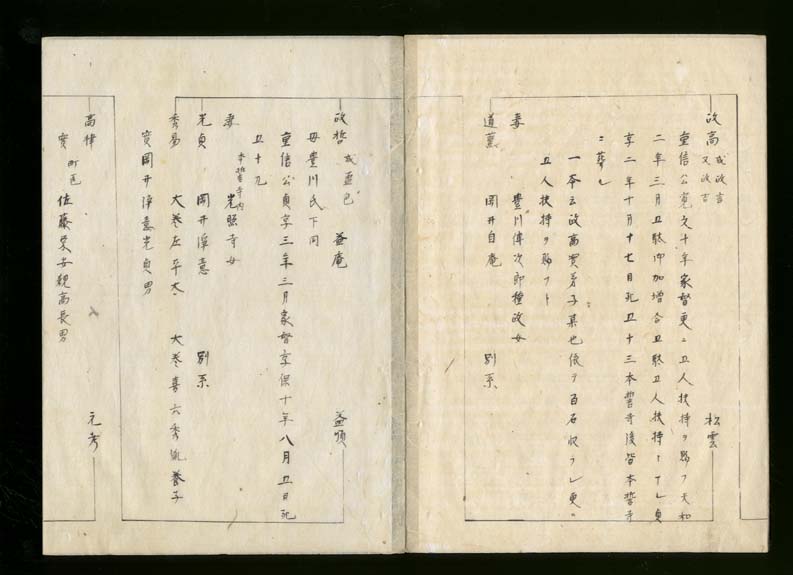 政高 或政言 又政吉 松雲
重信公寛文十年家督更ニ五人扶持ヲ賜フ天和
二年三月五駄御加増合五駄五人扶持トナル貞
享二年十月十七日死五十三本誓寺後皆本誓寺
ニ葬ル
一本云政高実弟子某也依テ百石収ラレ更ニ
五人扶持ヲ賜フト
妻 豊川伝次郎種政女
道薫 岡井自庵 別系
政哲 益庵 益順
母豊川氏下同
重信公貞享三年三月家督享保十年八月五日死
五十九
妻 本誓寺内光照寺女
光貞 岡井浄意 別系
秀易 大巻左平太 大巻喜六秀胤養子
実岡井浄意光貞男
高律 元考
実町医佐藤栄安親高長男